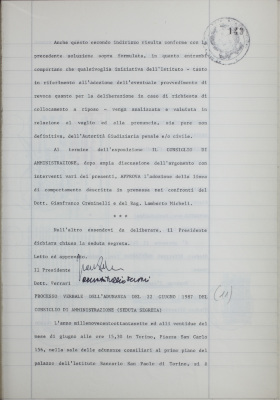 143
Anche questo secondo indirizzo risulta conforme con la
precedente soluzione sopra formulata, in quanto entrambi
comportano che qualsivoglia iniziativa dell'Istituto - tanto
in riferimento all'adozione dell'eventuale provvedimento di
revoca quanto per la deliberazione in caso di richiesta di
collocamento a riposo - venga analizzata e valutata in
relazione al vaglio ed alla pronuncia, sia pure non
definitiva, dell'Autorità Giudiziaria penale e/o civile.
Al termine dell'esposizione IL CONSIGLIO DI
AMMINISTRAZIONE, dopo ampia discussione dell'argomento con
interventi vari dei presenti, APPROVA l'adozione della linea
di comportamento descritta in premessa nei confronti del
Dott. Gianfranco e del Rag. Lamberto
* * *
Null'altro essendovi da deliberare, il Presidente
dichiara chiusa la seduta segreta.
Letto ed approvato.
Il Presidente
Dott. Ferrari
PROCESSO VERBALE DELL'ADUNANZA DEL 22 GIUGNO 1987 DEL
CONSIGLIO DI AMMINISTRAZIONE (SEDUTA SEGRETA)
L'anno millenovecentottantasette addì ventidue del
mese di giugno alle ore 15,30 in Torino, Piazza San Carlo
156, nella sala delle adunanze consiliari al primo piano del
palazzo dell'Istituto Bancario San Paolo di Torino, si è